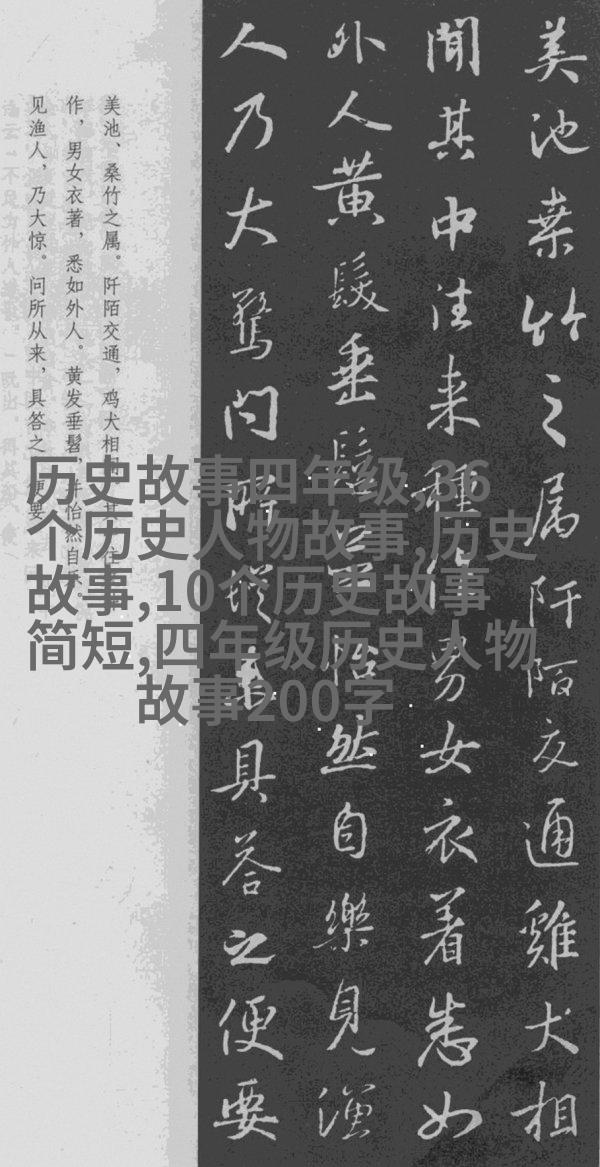 美池桒竹之属阡陌交通雞犬相
聞其中往来種作男女衣着悉如
外人黄髮垂髫並怡然自樂見漁
人乃大驚問所從来具答之便要
美池、桑竹之属。阡陌交通，鸡犬相
作，男女衣著，悉如外人。黄发垂髫，并怡然自乐。
见渔人，乃大惊。问所从来，具答之。便要
历史故事四年级,36
个历史人物故事,历史
故事,10个历史故事
简短,四年级历史人物
故事200字